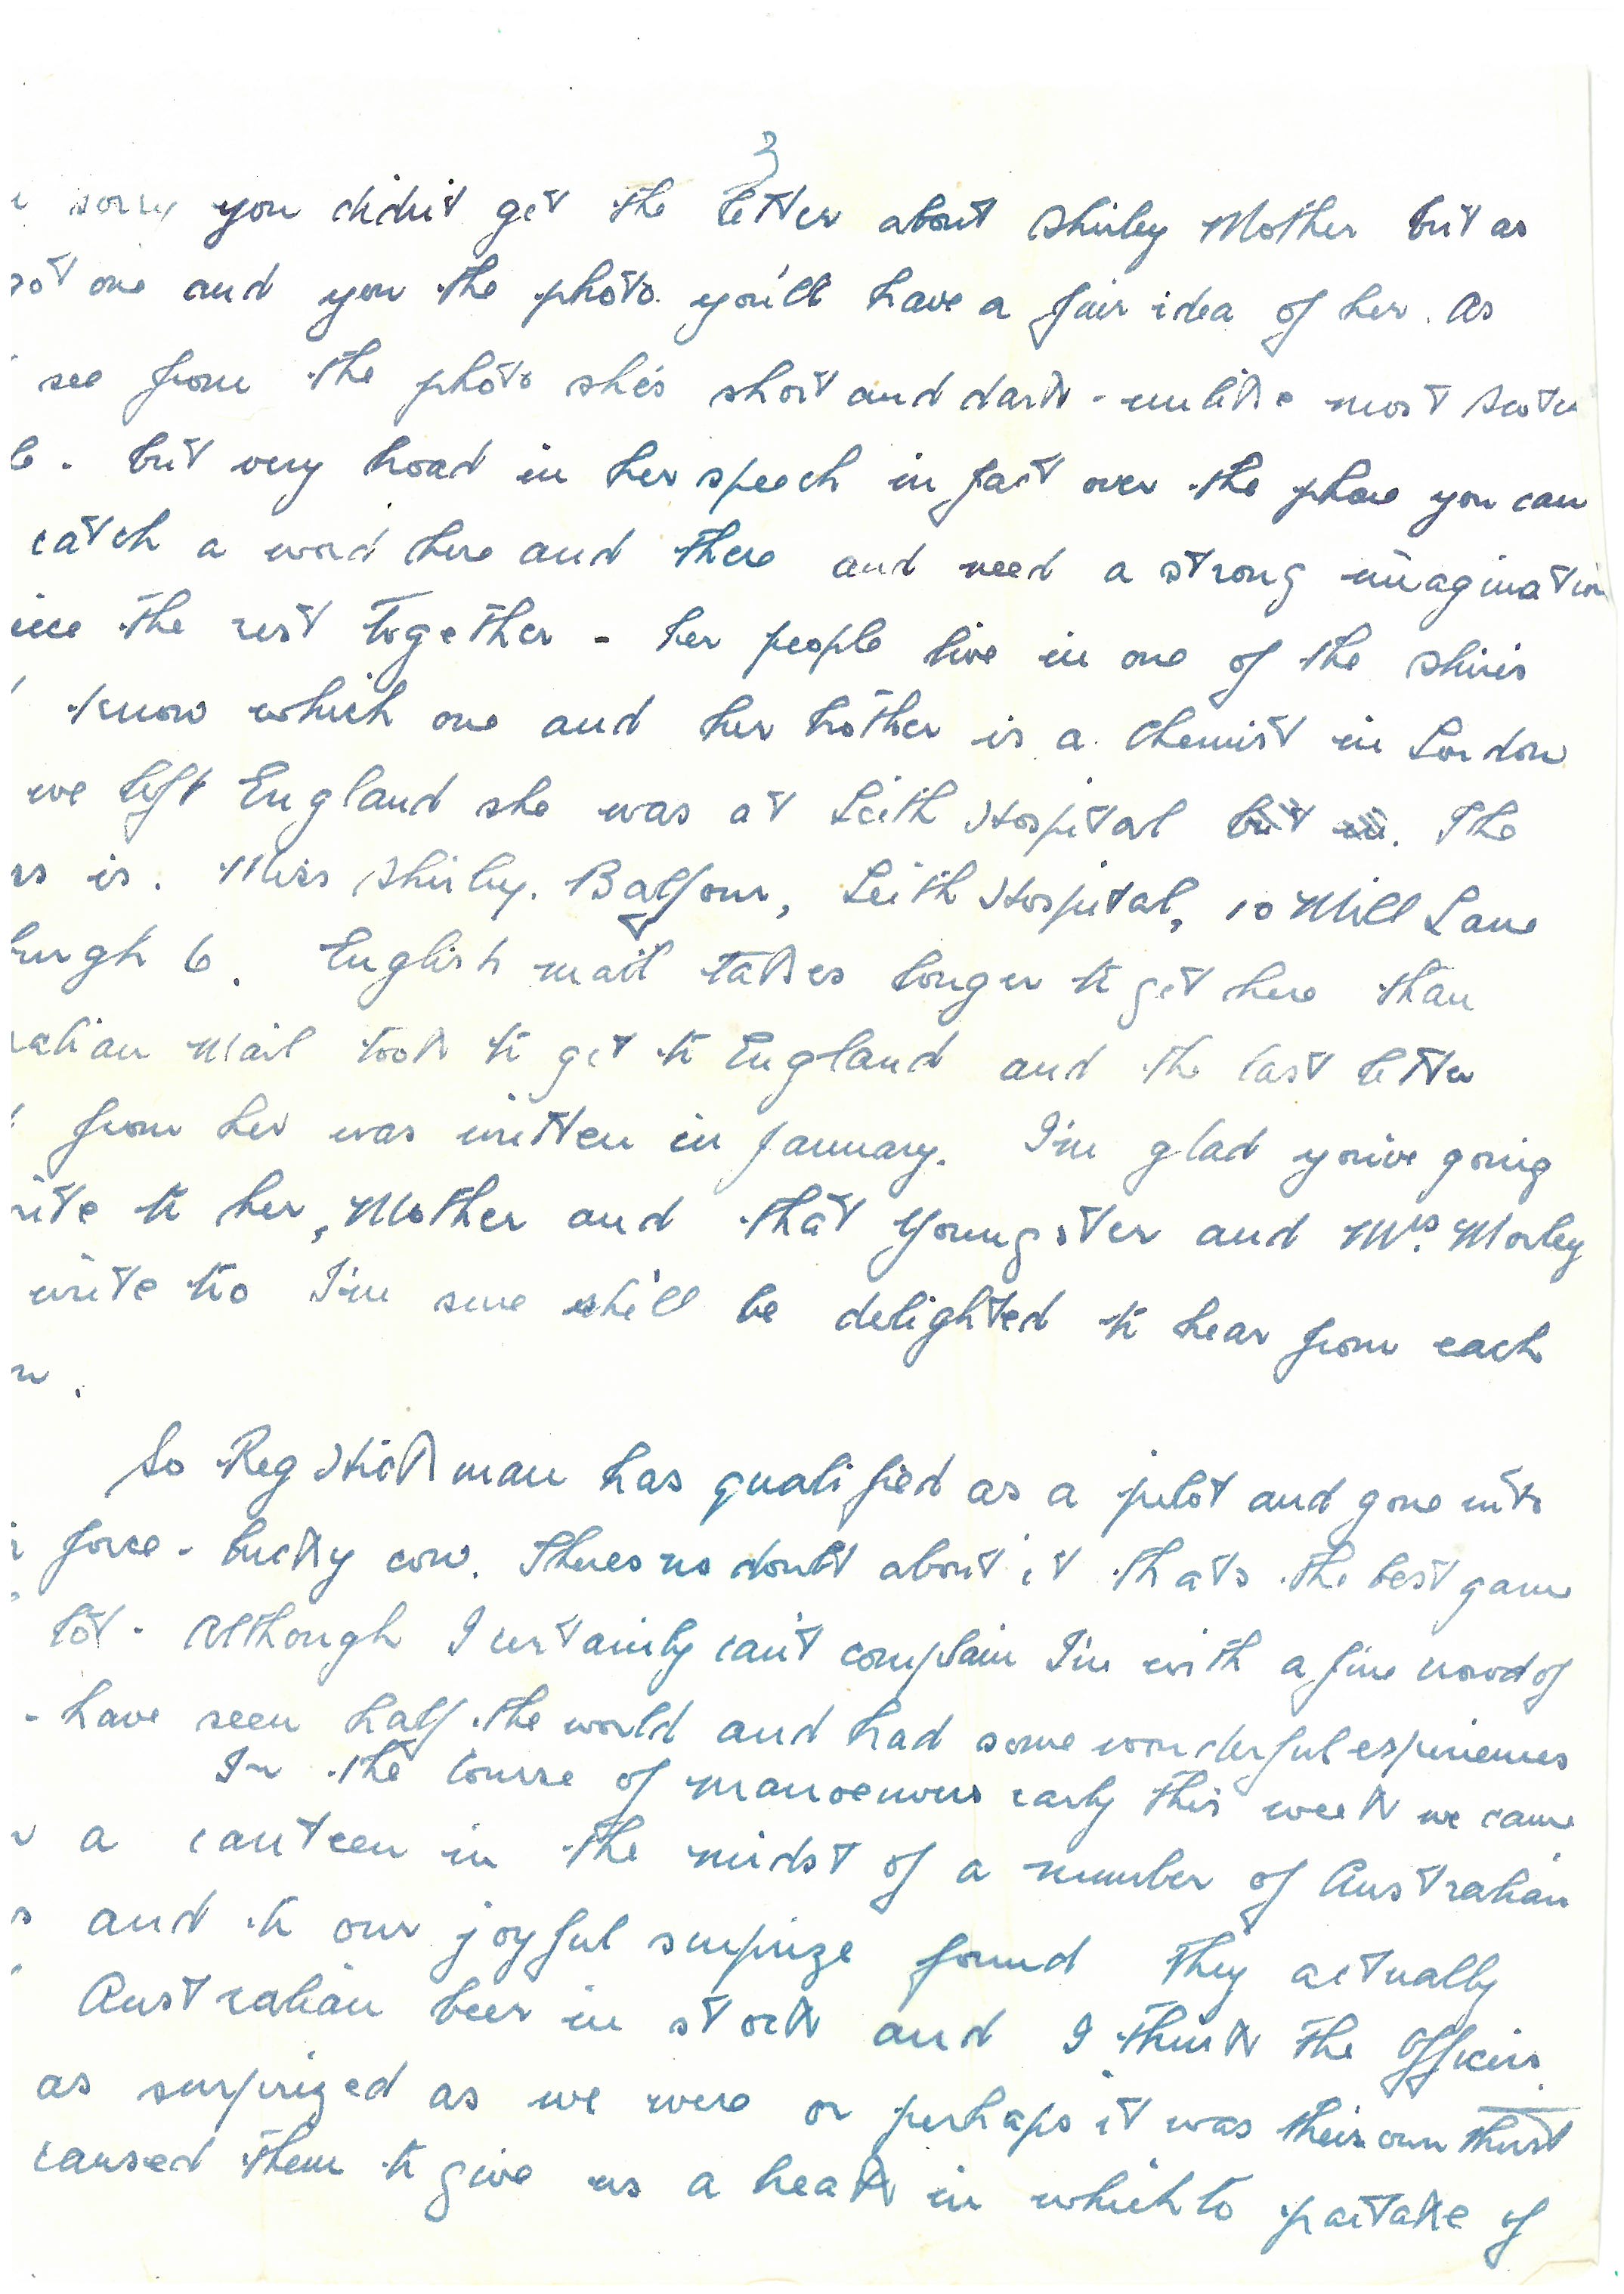 3
sorry you didn't get the letter about Shirley Mother but as
one and you the photo you'll have a fair idea of her. As
see from the photo she's short and dark - unlike most Scotch
but very broad in her speech in fact over the phone you can
catch a word here and there and need a strong imagination
the rest together - her people live in one of the shires
know which one and her brother is a chemist in London
we left England she was at Leith Hospital but in. The
is. Miss Shirley. Balfour, Leith Hospital, 10 Mill Lane
burgh 6. English mail takes longer to get here than
ralian mail took to get to England and the last letter
from her was written in January. I'm glad you're going
rite to her, Mother and that Youngster and Mrs. Morley
write too I'm sure she'll be delighted to hear from each
So Reg Hickman has qualified as a pilot and gone into
force - lucky cow. Theres no doubt about it thats the best game
lot - Although I certainly can't complain I'm with a fine crowd of
- have seen half the world and had some wonderful experiences
In the course of manoeuvres early this week we came
a canteen in the midst of a number of Australian
and to our joyful surprize found they actually
Australian beer in stock and I think the Officers
as surprized as we were or perhaps it was their own thirst
caused them to give us a break in which to partake of